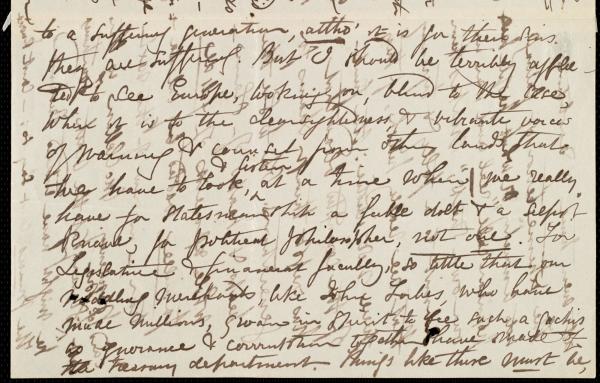 to a suffering generation, altho' it is for their sins
they are suffering. But I should be terribly afflic-
ted to see Europe, looking on, blind to the case
when it is to the clearsightedness & vibrante voices
of warning & counsel from other lands, that
& listen
they have to look, at a time when we really
have for Statesmanship a feeble dolt & a
Knave, for political philosopher, not one. For
Legislative & financial faculty, so little that our
meddling merchants, like John Forbes, who have
made millions, in spirit to see such a
ignorance & corruption together have made of
the Treasury department. Things like these must be,